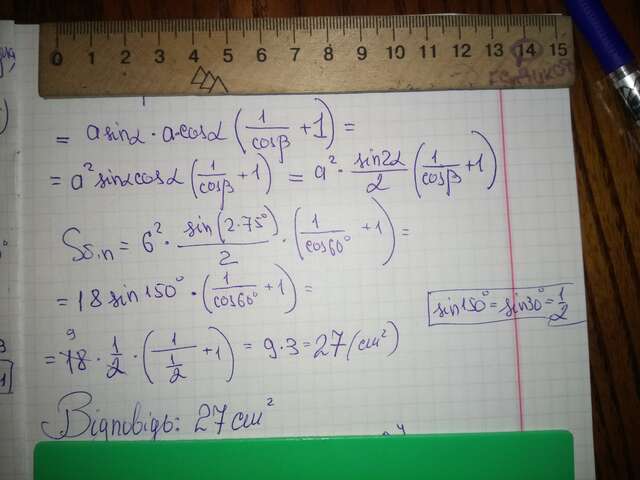 = a sinα · a cosα (1/cosβ + 1) =
= a² sinα cosα (1/cosβ + 1) = a² · sin2α/2 (1/cosβ + 1)
Sбіч = 6² · sin(2·75°)/2 · (1/cos60° + 1) =
= 18 sin150° · (1/cos60° + 1) =
= 18 · 1/2 · (1/(1/2) + 1) = 9·3 = 27 (см²)
9
sin150° = sin30° = 1/2
Відповідь: 27 см²
0 1 2 3 4 5 6 7 8 9 10 11 12 13 14 15